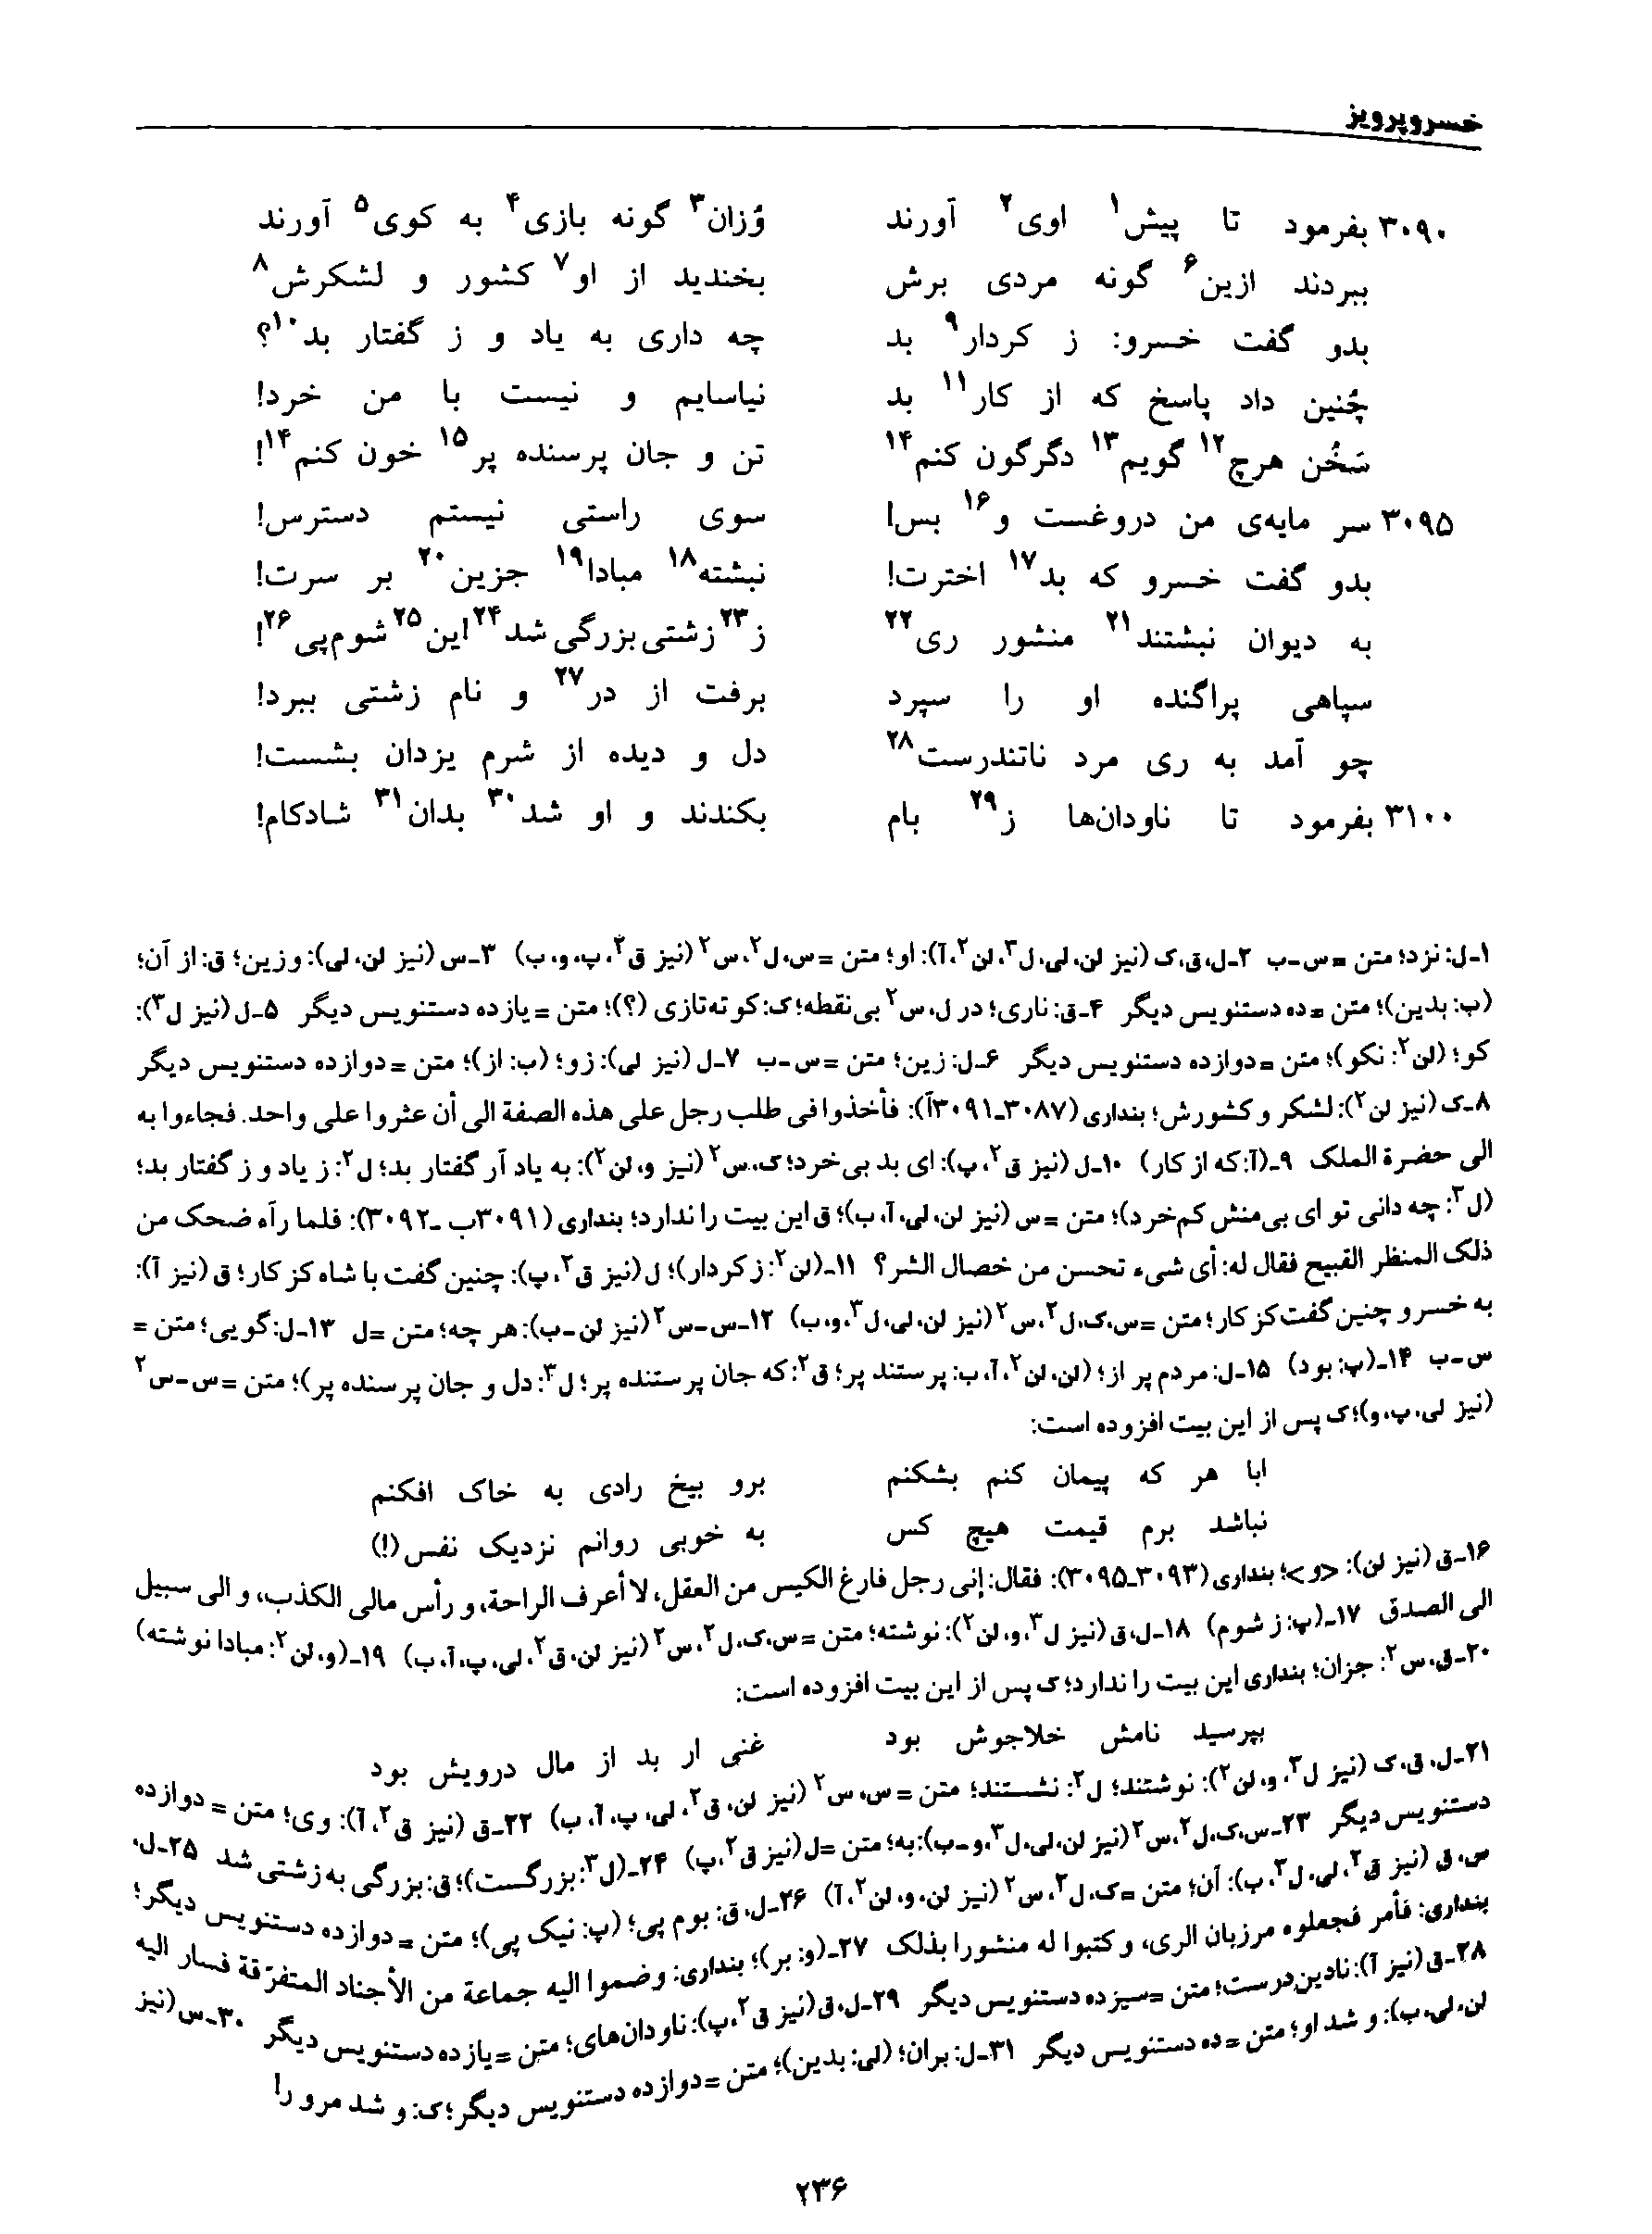 خسرو پرویز
۳۰۹۰ بفرمود تا پیش۱ اوی۲ آورند وُزان۳ گونه بازی۴ به کوی۵ آورند
ببردند ازین۶ گونه مردی برش بخندید از او۷ کشور و لشکرش۸
بدو گفت خسرو: ز کردار۹ بد چه داری به یاد و ز گفتار بد۱۰؟
چُنین داد پاسخ که از کار۱۱ بد نیاسایم و نیست با من خرد!
سَخُن هرچ۱۲ گویم۱۳ دگرگون کنم۱۴ تن و جان پرسنده پر۱۵ خون کنم۱۴!
۳۰۹۵ سر مایه‌ی من دروغست و۱۶ بس! سوی راستی نیستم دسترس!
بدو گفت خسرو که بد۱۷ اخترت! نبشته۱۸ مبادا۱۹ جزین۲۰ بر سرت!
به دیوان نبشتند۲۱ منشور ری۲۲ ز۲۳ زشتی بزرگی شد۲۴ این۲۵ شوم‌پی۲۶!
سپاهی پراگنده او را سپرد برفت از در۲۷ و نام زشتی ببرد!
چو آمد به ری مرد ناتندرست۲۸ دل و دیده از شرم یزدان بشست!
۳۱۰۰ بفرمود تا ناودان‌ها ز۲۹ بام بکندند و او شد۳۰ بدان۳۱ شادکام!
۱ـ ل: نزد؛ متن = س-ب ۲ـ ل، ق، ک (نیز لن، لی، ل۳، لن۲، آ): او؛ متن = س، ل۲، س۲ (نیز ق۲، پ، و، ب) ۳ـ س (نیز لن، لی): وزین؛ ق: از آن؛
(ب: بدین)؛ متن = ده دستنویس دیگر ۴ـ ق: ناری؛ در ل، س۲ بی‌نقطه؛ ک: کوته تازی (؟)؛ متن = یازده دستنویس دیگر ۵ـ ل (نیز ل۳):
کو؛ (لن۲: نکو)؛ متن = دوازده دستنویس دیگر ۶ـ ل: زین؛ متن = س-ب ۷ـ ل (نیز لی): زو؛ (ب: از)؛ متن = دوازده دستنویس دیگر
۸ـ ک (نیز لن۲): لشکر و کشورش؛ بنداری (۳۰۸۷ـ۳۰۹۱آ): فأخذوا فی طلب رجل علی هذه الصفة الی أن عثروا علی واحد. فجاءوا به
الی حضرة الملک ۹ـ (آ: که از کار) ۱۰ـ ل (نیز ق۲، پ): ای بد بی‌خرد؛ ک، س۲ (نیز و، لن۲): به یاد آر گفتار بد؛ ل۲: ز یاد و ز گفتار بد؛
(ل۳: چه دانی تو ای بی‌منش کم‌خرد)؛ متن = س (نیز لن، لی، آ، ب)؛ ق این بیت را ندارد؛ بنداری (۳۰۹۱ب ـ۳۰۹۲): فلما رآه ضحک من
ذلک المنظر القبیح فقال له: أی شیء تحسن من خصال الشر؟ ۱۱ـ (لن۲: ز کردار)؛ ل (نیز ق۲، پ): چنین گفت با شاه کز کار؛ ق (نیز آ):
به خسرو چنین گفت کز کار؛ متن = س، ک، ل۲، س۲ (نیز لن، لی، ل۳، و، ب) ۱۲ـ س-س۲ (نیز لن-ب): هر چه؛ متن = ل ۱۳ـ ل: گویی؛ متن =
س-ب ۱۴ـ (پ: بود) ۱۵ـ ل: مردم پر از؛ (لن، لن۲، آ، ب: پرستند پر؛ ق۲: که جان پرستنده پر؛ ل۳: دل و جان پرسنده پر)؛ متن = س-س۲
(نیز لی، پ، و)؛ ک پس از این بیت افزوده است:
ابا هر که پیمان کنم بشکنم برو بیخ رادی به خاک افکنم
نباشد برم قیمت هیچ کس به خوبی روانم نزدیک نفس (!)
۱۶ـ ق (نیز لن): <و>؛ بنداری (۳۰۹۳ـ۳۰۹۵): فقال: إنی رجل فارغ الکیس من العقل، لا أعرف الراحة، و رأس مالی الکذب، و الی سبیل
الی الصدق ۱۷ـ (پ: ز شوم) ۱۸ـ ل، ق (نیز ل۳، و، لن۲): نوشته؛ متن = س، ک، ل۲، س۲ (نیز لن، ق۲، لی، پ، آ، ب) ۱۹ـ (و، لن۲: مبادا نوشته)
۲۰ـ ق، س۲: جزان؛ بنداری این بیت را ندارد؛ ک پس از این بیت افزوده است:
بپرسید نامش خلاجوش بود غنی ار بد از مال درویش بود
۲۱ـ ل، ق، ک (نیز ل۳، و، لن۲): نوشتند؛ ل۲: نشستند؛ متن = س، س۲ (نیز لن، ق۲، لی، پ، آ، ب) ۲۲ـ ق (نیز ق۲، آ): وی؛ متن = دوازده
دستنویس دیگر ۲۳ـ س، ک، ل۲، س۲ (نیز لن، لی، ل۳، و-ب): به؛ متن = ل (نیز ق۲، پ) ۲۴ـ (ل۳: بزرگست)؛ ق: بزرگی به زشتی شد ۲۵ـ ل،
س، ق (نیز ق۲، لی، ل۳، ب): آن؛ متن = ک، ل۲، س۲ (نیز لن، و، لن۲، آ) ۲۶ـ ل، ق: بوم پی؛ (پ: نیک پی)؛ متن = دوازده دستنویس دیگر؛
بنداری: فأمر فجعلوه مرزبان الری، و کتبوا له منشورا بذلک ۲۷ـ (و: بر)؛ بنداری: وضموا الیه جماعة من الأجناد المتفرّقة فسار الیه
۲۸ـ ق (نیز آ): نادین‌درست؛ متن = سیزده دستنویس دیگر ۲۹ـ ل، ق (نیز ق۲، پ): ناودان‌های؛ متن = یازده دستنویس دیگر ۳۰ـ س (نیز
لن، لی، ب): و شد او؛ متن = ده دستنویس دیگر ۳۱ـ ل: بران؛ (لی: بدین)؛ متن = دوازده دستنویس دیگر؛ ک: و شد مرو را!
۲۳۶